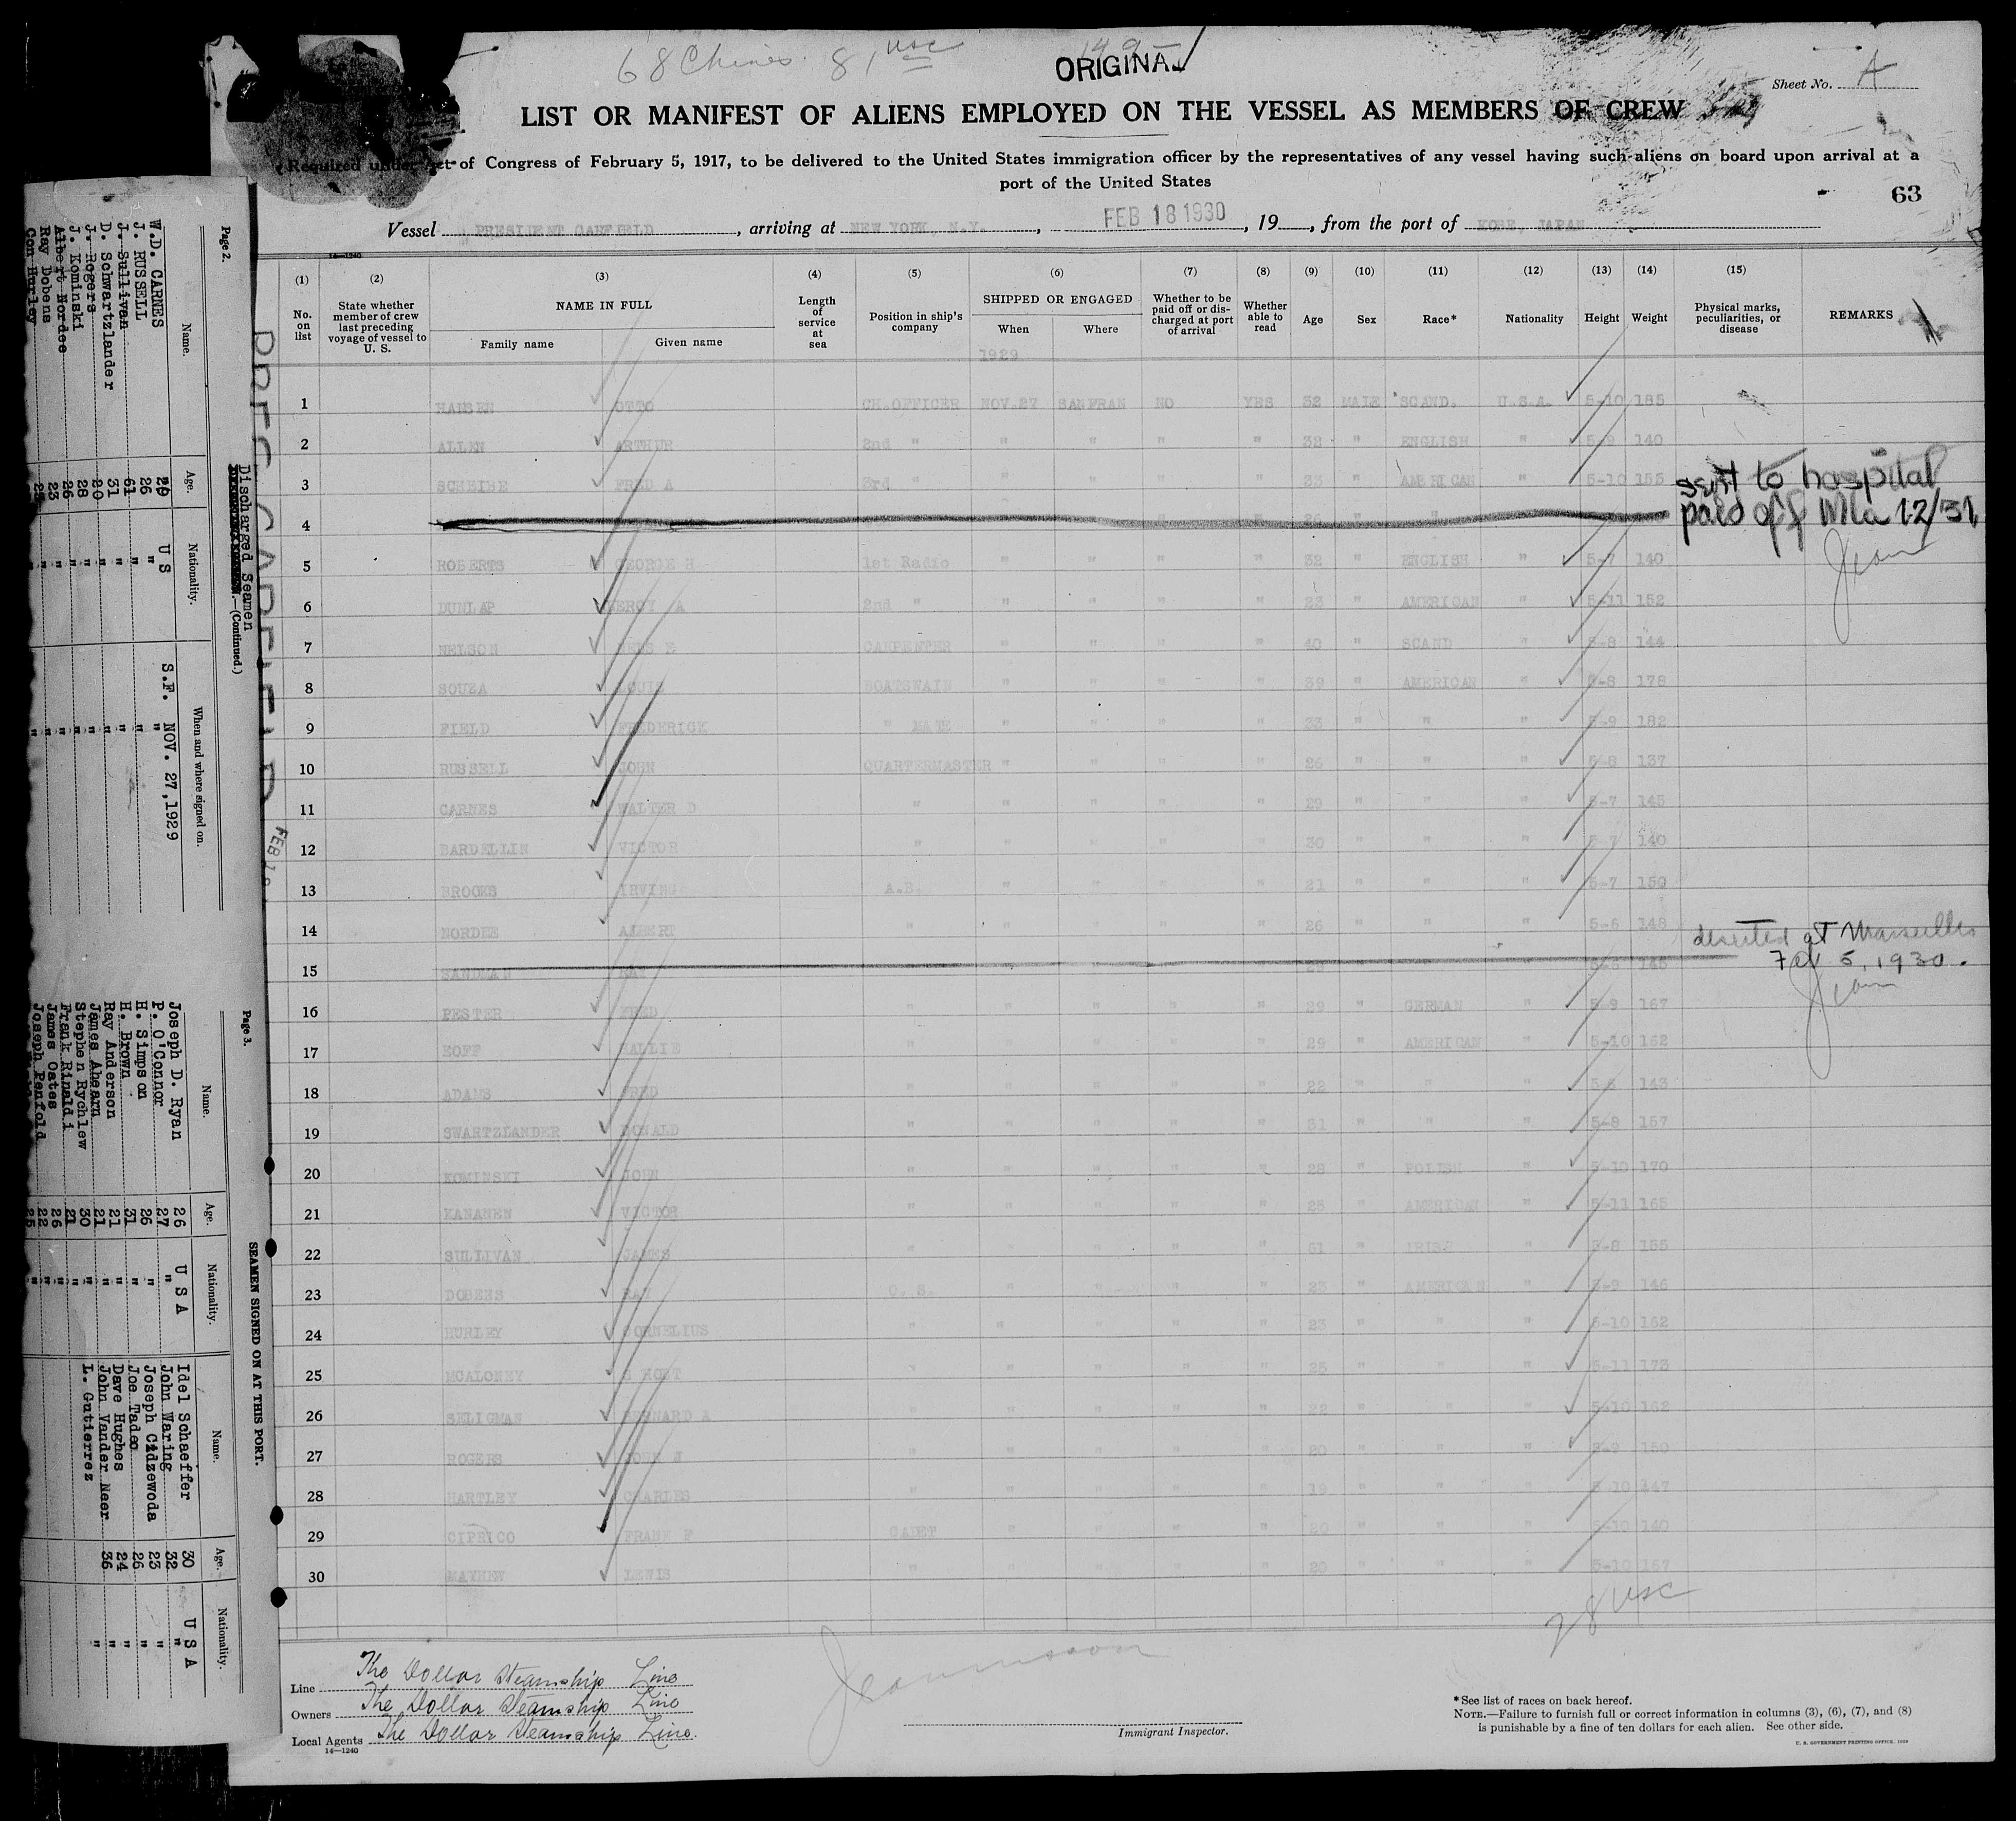 68 Chines. 81 usc 149
ORIGINAL
Sheet No. A
LIST OR MANIFEST OF ALIENS EMPLOYED ON THE VESSEL AS MEMBERS OF CREW
Required under Act of Congress of February 5, 1917, to be delivered to the United States immigration officer by the representatives of any vessel having such aliens on board upon arrival at a
port of the United States
63
Vessel PRESIDENT GARFIELD, arriving at NEW YORK, N.Y., FEB 18 1930, 19__, from the port of KOBE, JAPAN
14—1240
(1) (2) (3) (4) (5) (6) (7) (8) (9) (10) (11) (12) (13) (14) (15)
No. on list
State whether member of crew last preceding voyage of vessel to U. S.
NAME IN FULL
Family name Given name
Length of service at sea
Position in ship's company
SHIPPED OR ENGAGED
When Where
Whether to be paid off or discharged at port of arrival
Whether able to read
Age Sex Race* Nationality Height Weight
Physical marks, peculiarities, or disease
REMARKS
1929
1 HANSEN OTTO CH.OFFICER NOV.27 SANFRAN NO YES 32 MALE SCAND. U.S.A. 5-10 185
2 ALLEN ARTHUR 2nd " " " " " 32 " ENGLISH " 5-9 140
3 SCHEIBE FRED A 3rd " " " " " 33 " AMERICAN " 5-10 155
4 sent to hospital
paid off Mla 12/31
5 ROBERTS GEORGE H 1st Radio " " " " 32 " ENGLISH " 5-7 140
6 DUNLAP LEROY A 2nd " " " " " 23 " AMERICAN " 5-11 152
7 NELSON NELS E CARPENTER " " " " 40 " SCAND " 5-8 144
8 SOUZA LOUIS BOATSWAIN " " " " 39 " AMERICAN " 5-8 178
9 FIELD FREDERICK " MATE " " " " 33 " " " 5-9 182
10 RUSSELL JOHN QUARTERMASTER " " " " 26 " " " 5-8 137
11 CARNES WALTER D " " " " " 29 " " " 5-7 145
12 BARDELLIN VICTOR " " " " " 30 " " " 5-7 140
13 BROOKS IRVING A.B. " " " " 21 " " " 5-7 150
14 NORDEE ALBERT " " " " " 26 " " " 5-6 148
15 deserted at Marseilles
Feb 5, 1930.
16 PESTER FRED " " " " " 29 " GERMAN " 5-9 167
17 EOFF WALLIE " " " " " 29 " AMERICAN " 5-10 162
18 ADAMS FRED " " " " " 22 " " " 5-6 143
19 SWARTZLANDER DONALD " " " " " 31 " " " 5-8 157
20 KOMINSKI JOHN " " " " " 28 " POLISH " 5-10 170
21 KANANEN VICTOR " " " " " 25 " AMERICAN " 5-11 165
22 SULLIVAN JAMES " " " " " 61 " IRISH " 5-8 155
23 DOBENS RAY O. S. " " " " 23 " AMERICAN " 5-9 146
24 HURLEY CORNELIUS " " " " " 23 " " " 5-10 162
25 MCALONEY " " " " " 25 " " " 5-11 173
26 SELIGMAN BERNARD A " " " " " 22 " " " 5-10 162
27 ROGERS JOHN " " " " " 20 " " " 5-9 150
28 HARTLEY CHARLES " " " " " 19 " " " 5-10 147
29 CIPRICO FRANK F CADET " " " " 20 " " " 5-10 140
30 MAYHEW LEWIS " " " " " 20 " " " 5-10 167
28 usc
Line The Dollar Steamship Line
Owners The Dollar Steamship Line
Local Agents The Dollar Steamship Line.
14—1240
Immigrant Inspector.
*See list of races on back hereof.
NOTE.—Failure to furnish full or correct information in columns (3), (6), (7), and (8)
is punishable by a fine of ten dollars for each alien. See other side.
U. S. GOVERNMENT PRINTING OFFICE, 1929
Page 2.
Discharged Seamen —(Continued.)
Name. Age. Nationality. When and where signed on.
W.D. CARNES 29 US S.F. NOV. 27,1929
J. RUSSELL 26 " "
J. Sullivan 61 " "
D. Schwartzlander 31 " "
J. Rogers 20 " "
J. Kominski 28 " "
Albert Nordee 26 " "
Ray Dobens 23 " "
Con Hurley 23 " "
Page 3.
SEAMEN SIGNED ON AT THIS PORT.
Name. Age. Nationality. Name. Age. Nationality.
Joseph D. Ryan 26 USA Idel Schaeffer 30 USA
P. O'Connor 27 " John Waring 32 "
H. Simpson 26 " Joseph Cidzewoda 23 "
H. Brown 31 " Joe Tadeo 26 "
Ray Anderson 21 " Dave Hughes 24 "
James Ahearn 21 " John Vander Neer 36 "
Stephen Rychlew 30 " L. Gutierrez
Frank Rinaldi 21 "
James Oates 26 "
Joseph Penfold 22 "
PRES GARFIELD
FEB 18